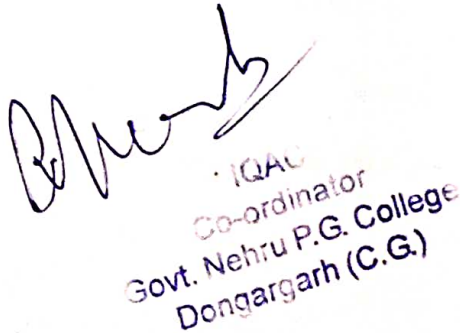 IQAC
Co-ordinator
Govt. Nehru P.G. College
Dongargarh (C.G.)